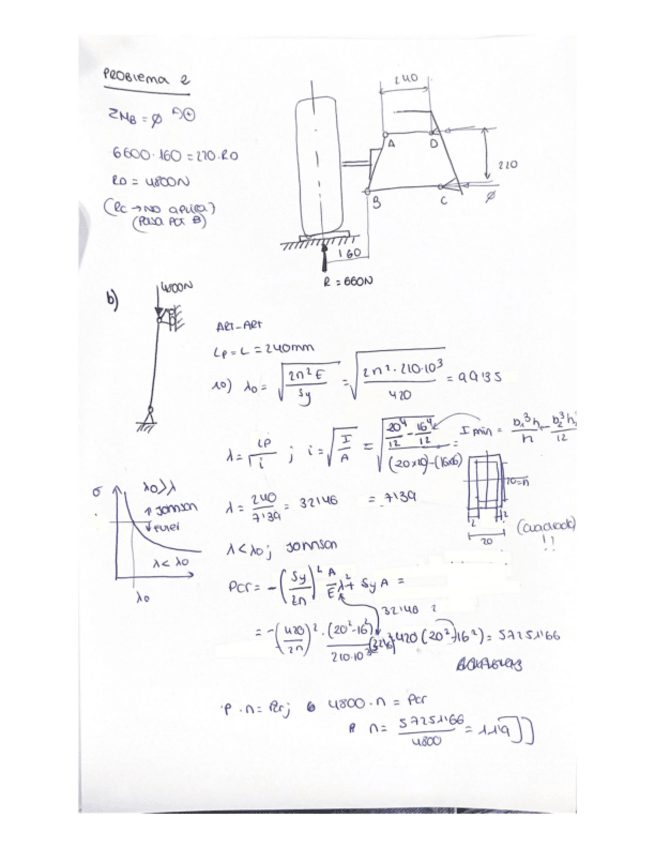 PROBLEMA 2
ΣMB = Ø
6600·160 = 220·RD
RD = 4800N
(RC → NO aplica)
(Pasa por B)
240
A
D
220
B
C
Ø
160
R = 660N
b)
4800N
ART-ART
LP = L = 240mm
1º) λ0 = √(2π²E / Sy) = √(2π²·210·10³ / 420) = 99'35
λ = LP / i ; i = √(I / A) = √((20⁴/12 - 16⁴/12) / ((20x20)-(16x16))) =
I min =
= 7'39
λ = 240 / 7'39 = 32'46
20
2
20
(cuadrado)
!!
σ
λ0>λ
↑ JOHNSON
↓ EULER
λ < λ0
λ0
λ < λ0 ; JOHNSON
Pcr = -(Sy / 2π)² A/E λ² + Sy A =
32'46²
= -(420 / 2π)² · (20²-16²) / 210·10³ (32'46)² + 420 (20²-16²) = 57251'66
P·n = Pcr ; 4800·n = Pcr
n = 57251'66 / 4800 = 11'9